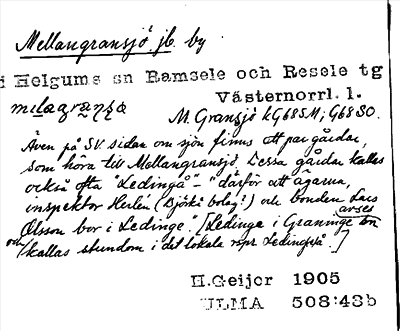 Mellangransjö. jb. by
i Helgums sn Ramsele och Resele tg
Västernorrl. l.
M. Gransjö kG68SM; G68SO.
Även på SV. sidan om sjön finns ett par gårdar,
som höra till Mellangransjö. Dessa gårdar kallas
också ofta "Ledingå" - "därför att ägarna,
inspektor Herlén (Björkå bolag!) och bonden Lars
Olsson bor i Ledinge". [Ledinge i Graninge sn avses
och kallas stundom i det lokala repr. Ledingså.]
H.Geijer 1905
ULMA 508:43b